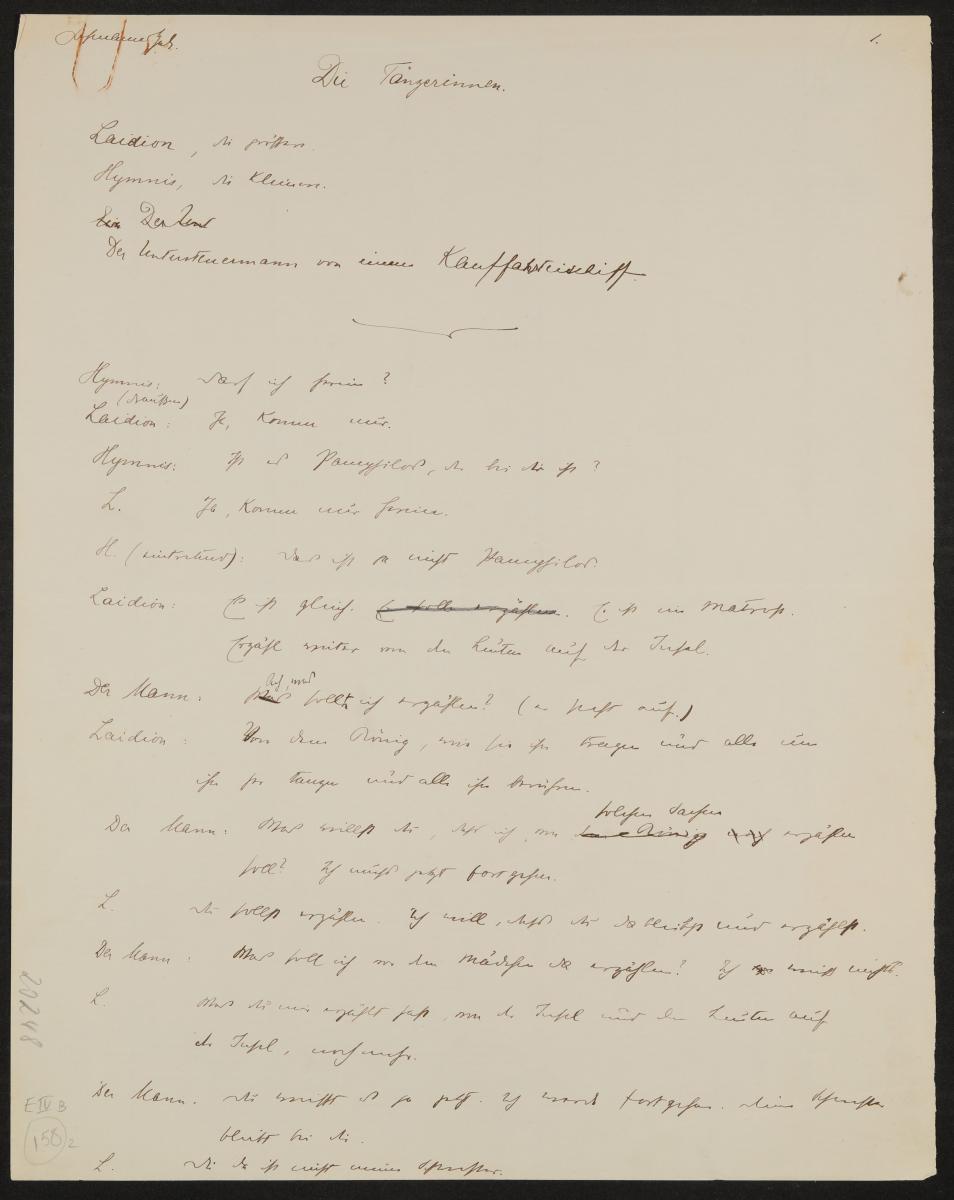 1.
Die Tänzerinnen.
Laidion, die größere.
Hymnis, die Kleinere.
Ein Der Unt
Der Untersteuermann von einem Kauffahrteischiff.
Hymnis: Darf ich herein?
(draußen)
Laidion: Ja, komm nur.
Hymnis: Ist es Pamphilos, der bei dir ist?
L. Ja, komm nur herein.
H. (eintretend): Das ist ja nicht Pamphilos.
Laidion: Es ist gleich. Er soll erzählen. Er ist ein Matrose.
Erzähl weiter von den Leuten auf der Insel.
Ach, was
Der Mann: Was soll ich erzählen? (er steht auf.)
Laidion: Von dem König, wie sie ihn tragen und alle um
ihn her tanzen und alle ihn berühren.
solchen Sachen
Der Mann: Was willst du, daß ich von dem König noch erzählen
soll? Ich muß jetzt fortgehen.
L. Du sollst erzählen. Ich will, daß du dableibst und erzählst.
Der Mann: Was soll ich vor dem Mädchen da erzählen? Ich weiß nichts.
L. Was du mir erzählt hast, von der Insel und den Leuten auf
der Insel, noch mehr.
Der Mann. Du weißt es ja jetzt. Ich werde fortgehen. Deine Schwester
bleibt bei dir.
L. Die da ist nicht meine Schwester.
20248
E IV B
158 2